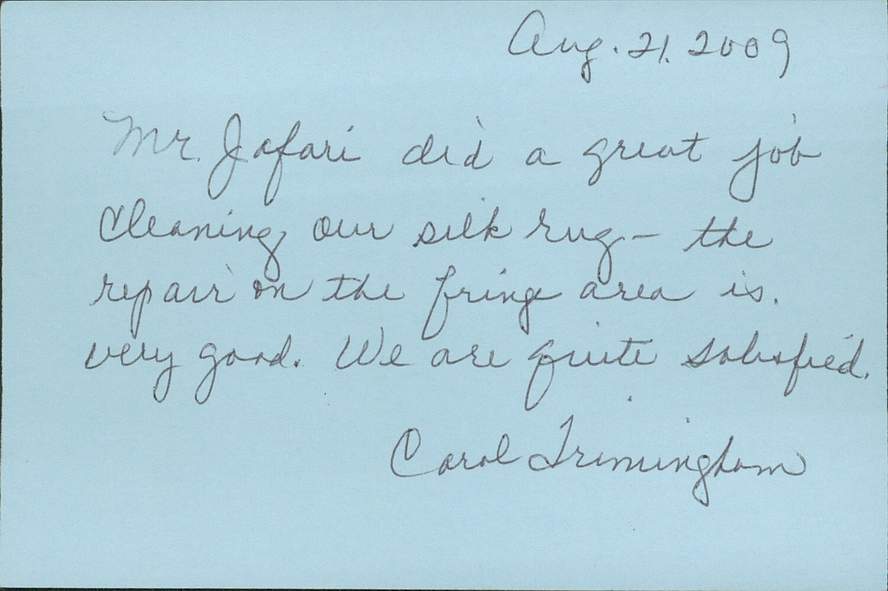 Aug. 21, 2009
Mr. Jafari did a great job
cleaning our silk rug - the
repair on the fringe area is
very good. We are quite satisfied.
Carol Trimingham